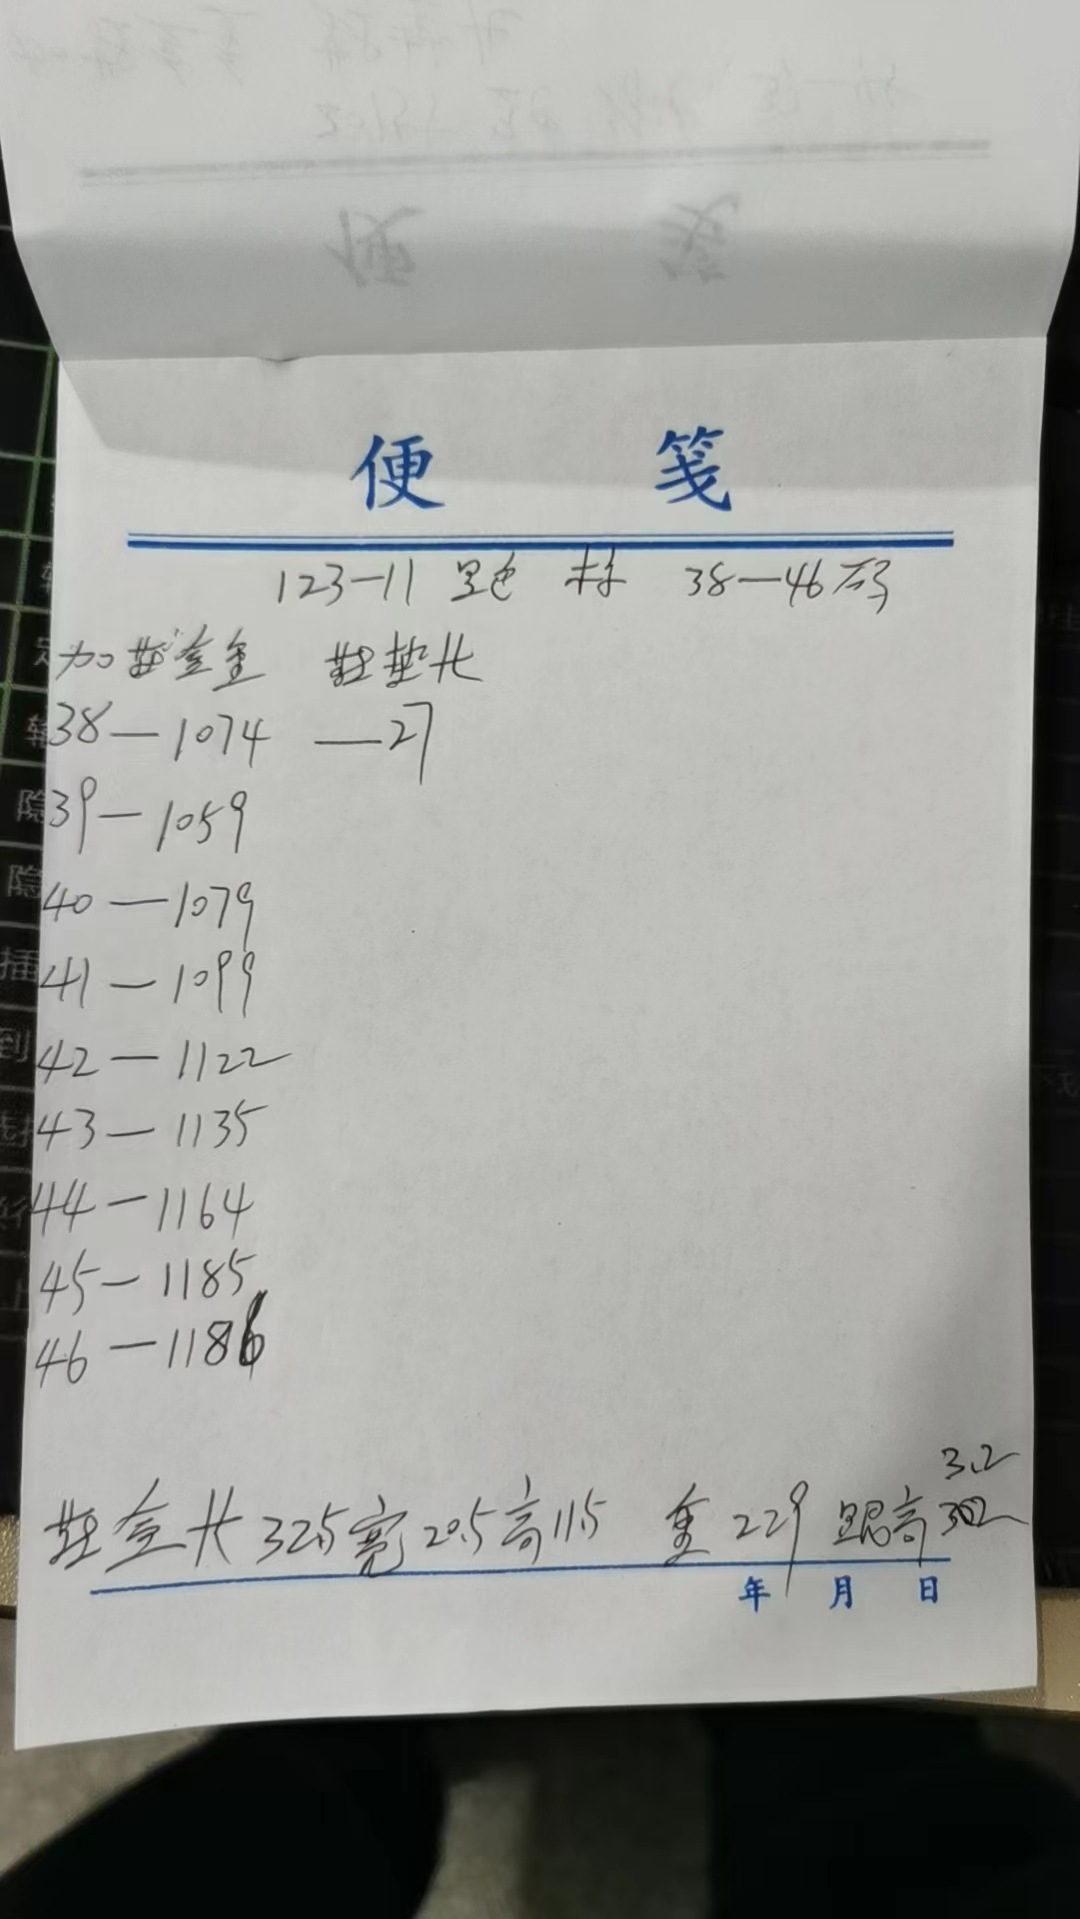 便 笺
123-11 黑色 样 38-46码
加鞋盒重 鞋垫长
38-1074 -27
39-1059
40-1079
41-1099
42-1122
43-1135
44-1164
45-1185
46-1186
3.2
鞋盒长32.5宽20.5高11.5 重229 跟高
年 月 日